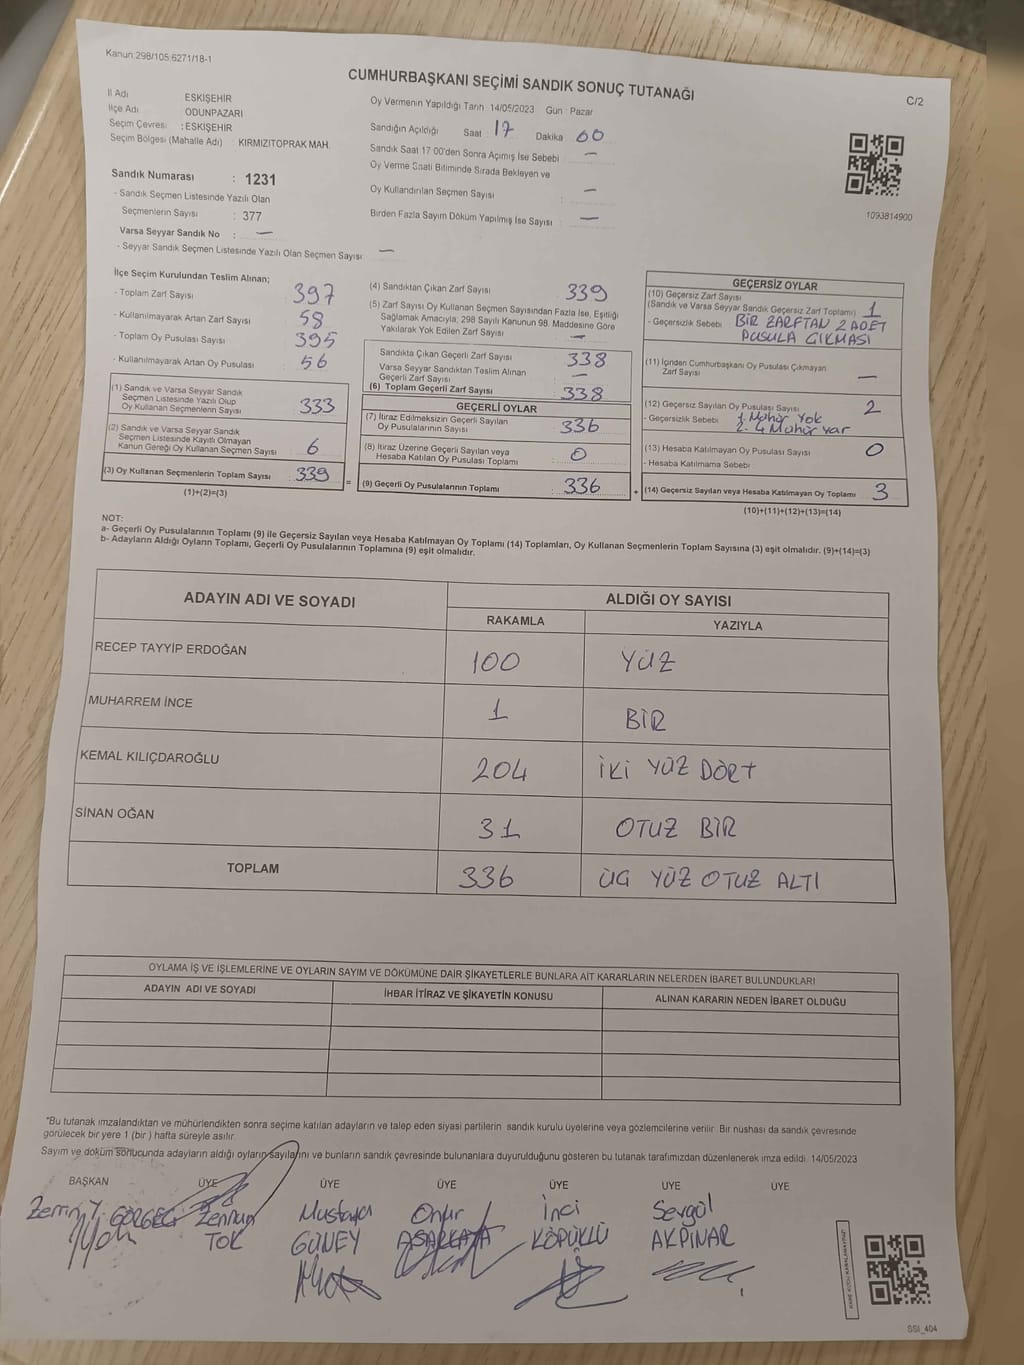 Kanun:298/105;6271/18-1
CUMHURBAŞKANI SEÇİMİ SANDIK SONUÇ TUTANAĞI
C/2
İl Adı ESKİŞEHİR
İlçe Adı ODUNPAZARI
Seçim Çevresi : ESKİŞEHİR
Seçim Bölgesi (Mahalle Adı) : KIRMIZITOPRAK MAH.
Sandık Numarası : 1231
- Sandık Seçmen Listesinde Yazılı Olan
Seçmenlerin Sayısı : 377
Varsa Seyyar Sandık No : —
- Seyyar Sandık Seçmen Listesinde Yazılı Olan Seçmen Sayısı —
Oy Vermenin Yapıldığı Tarih 14/05/2023 Gün : Pazar
Sandığın Açıldığı Saat : 17 Dakika 00
Sandık Saat 17:00'den Sonra Açılmış İse Sebebi —
Oy Verme Saati Bitiminde Sırada Bekleyen ve
Oy Kullandırılan Seçmen Sayısı —
Birden Fazla Sayım Döküm Yapılmış İse Sayısı —
1093814900
İlçe Seçim Kurulundan Teslim Alınan;
- Toplam Zarf Sayısı 397
- Kullanılmayarak Artan Zarf Sayısı 58
- Toplam Oy Pusulası Sayısı 395
- Kullanılmayarak Artan Oy Pusulası 56
(1) Sandık ve Varsa Seyyar Sandık
Seçmen Listesinde Yazılı Olup
Oy Kullanan Seçmenlerin Sayısı 333
(2) Sandık ve Varsa Seyyar Sandık
Seçmen Listesinde Kayıtlı Olmayan
Kanun Gereği Oy Kullanan Seçmen Sayısı 6
(3) Oy Kullanan Seçmenlerin Toplam Sayısı 339
(1)+(2)=(3)
(4) Sandıktan Çıkan Zarf Sayısı 339
(5) Zarf Sayısı Oy Kullanan Seçmen Sayısından Fazla İse, Eşitliği
Sağlamak Amacıyla, 298 Sayılı Kanunun 98. Maddesine Göre
Yakılarak Yok Edilen Zarf Sayısı —
Sandıkta Çıkan Geçerli Zarf Sayısı 338
Varsa Seyyar Sandıktan Teslim Alınan
Geçerli Zarf Sayısı —
(6) Toplam Geçerli Zarf Sayısı 338
GEÇERLİ OYLAR
(7) İtiraz Edilmeksizin Geçerli Sayılan
Oy Pusulalarının Sayısı 336
(8) İtiraz Üzerine Geçerli Sayılan veya
Hesaba Katılan Oy Pusulası Toplamı 0
= (9) Geçerli Oy Pusulalarının Toplamı 336
GEÇERSİZ OYLAR
(10) Geçersiz Zarf Sayısı
(Sandık ve Varsa Seyyar Sandık Geçersiz Zarf Toplamı) 1
- Geçersizlik Sebebi BİR ZARFTAN 2 ADET
PUSULA ÇIKMASI
(11) İçinden Cumhurbaşkanı Oy Pusulası Çıkmayan
Zarf Sayısı —
(12) Geçersiz Sayılan Oy Pusulası Sayısı 2
- Geçersizlik Sebebi 1. Mühür Yok
2. 4 Mühür var
(13) Hesaba Katılmayan Oy Pusulası Sayısı 0
- Hesaba Katılmama Sebebi
+ (14) Geçersiz Sayılan veya Hesaba Katılmayan Oy Toplamı 3
(10)+(11)+(12)+(13)=(14)
NOT:
a- Geçerli Oy Pusulalarının Toplamı (9) ile Geçersiz Sayılan veya Hesaba Katılmayan Oy Toplamı (14) Toplamları, Oy Kullanan Seçmenlerin Toplam Sayısına (3) eşit olmalıdır. (9)+(14)=(3)
b- Adayların Aldığı Oyların Toplamı, Geçerli Oy Pusulalarının Toplamına (9) eşit olmalıdır.
ADAYIN ADI VE SOYADI ALDIĞI OY SAYISI
RAKAMLA YAZIYLA
RECEP TAYYİP ERDOĞAN 100 YÜZ
MUHARREM İNCE 1 BİR
KEMAL KILIÇDAROĞLU 204 İKİ YÜZ DÖRT
SİNAN OĞAN 31 OTUZ BİR
TOPLAM 336 ÜÇ YÜZ OTUZ ALTI
OYLAMA İŞ VE İŞLEMLERİNE VE OYLARIN SAYIM VE DÖKÜMÜNE DAİR ŞİKAYETLERLE BUNLARA AİT KARARLARIN NELERDEN İBARET BULUNDUKLARI
ADAYIN ADI VE SOYADI İHBAR İTİRAZ VE ŞİKAYETİN KONUSU ALINAN KARARIN NEDEN İBARET OLDUĞU
*Bu tutanak imzalandıktan ve mühürlendikten sonra seçime katılan adayların ve talep eden siyasi partilerin sandık kurulu üyelerine veya gözlemcilerine verilir. Bir nüshası da sandık çevresinde
görülecek bir yere 1 (bir) hafta süreyle asılır.
Sayım ve döküm sonucunda adayların aldığı oyların sayılarını ve bunların sandık çevresinde bulunanlara duyurulduğunu gösteren bu tutanak tarafımızdan düzenlenerek imza edildi. 14/05/2023
BAŞKAN ÜYE ÜYE ÜYE ÜYE ÜYE ÜYE
Mustafa Onur İnci Sevgül
TOK GÜNEY KÖPÜKLÜ AKPINAR
SSİ_404